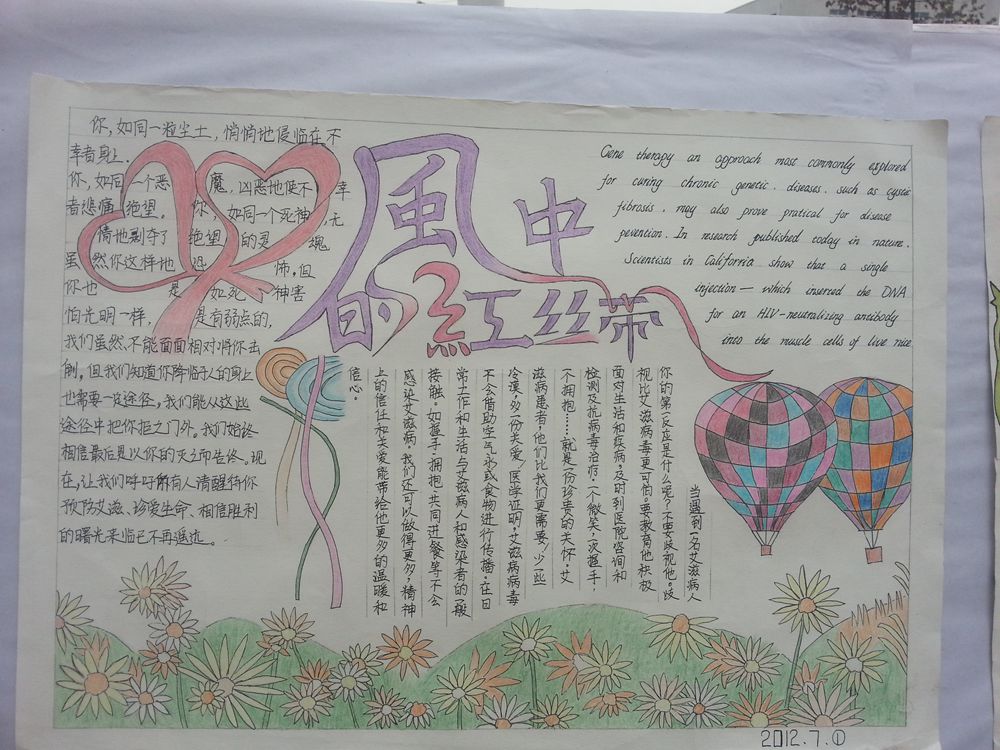 你,如同一粒尘土,悄悄地侵临在不
幸者身上.
你,如同一个恶魔,凶恶地使不幸
者悲痛绝望.你,如同一个死神,无
情地剥夺了绝望的灵魂
虽然你这样地恐怖,但
你也是如死个神害
怕光明一样,是有弱点的,
我们虽然不能面面相对将你击
倒,但我们知道你降临于人的身上
也需要一定途径,我们能从这些
途径中把你拒之门外.我们始终
相信最后是以你的灭亡而告终.现
在,让我们呼吁所有人清醒待你
预防艾滋、珍爱生命、相信胜利
的曙光来临已不再遥远.
風中
的紅丝带
Gene therapy an approach most commonly explored
for curing chronic genetic. diseases. such as cystic
fibrosis. may also prove pratical for disease
pevention. In research published today in nature.
Scientists in California show that a single
injection — which inserted the DNA
for an HIV-neutralizing antibody
into the muscle cells of live mice
当遇到一名艾滋病人
你的第一反应是什么呢?不要歧视他。歧
视比艾滋病毒更可怕。要教育他积极
面对生活和疾病,及时到医院咨询和
检测及抗病毒治疗.一个微笑,一次握手,
一个拥抱……就是一份珍贵的关怀。艾
滋病患者,他们比我们更需要,少一些
冷漠,多一份关爱!医学证明,艾滋病病毒
不会借助空气水或食物进行传播。在日
常工作和生活与艾滋病人和感染者的一般
接触。如握手.拥抱.共同进餐等不会
感染艾滋病,我们还可以做得更多,精神
上的信任和关爱能带给他更多的温暖和
信心。
2012.7.①